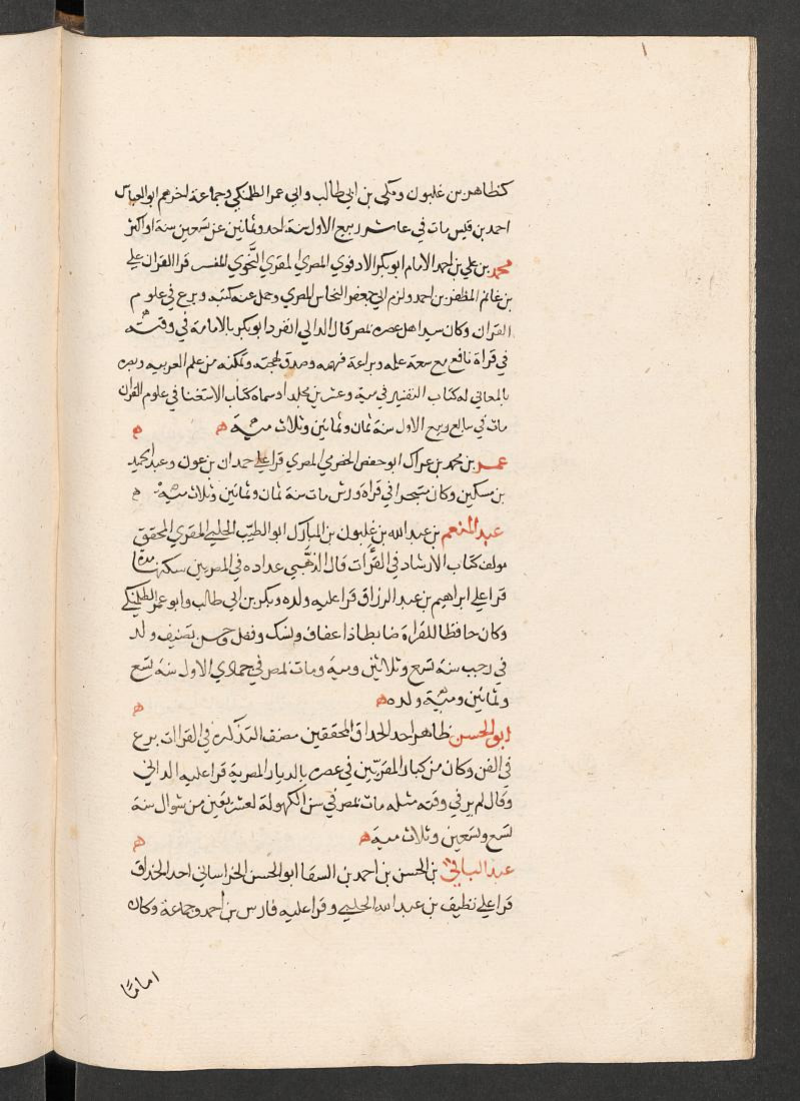 كطاهر بن غلبون ومكي بن ابي طالب وابي عمر الطلمنكي وجماعة اخرهم ابو العباس
احمد بن قيس مات في عاشر ربيع الاول سنة احد وثمانين عن تسعين سنة او اكثر
محمد بن علي بن احمد الامام ابو بكر الادفوي المصري المقري النحوي المفسر قرا القران علي
بن غانم المظفر بن احمد ولزم ابي جعفر النحاس المصري وحمل عنه كتبه وبرع في علوم
القران وكان سيد اهل عصره بمصر قال الداني انفرد ابو بكر بالامامة في وقته
في قراة نافع مع سعة علمه وبراعة فهمه وصدق لهجته وتمكنه من علم العربيه وبصره
بالمعاني له كتاب التفسير في مية وعشرين مجلدا وسماه كتاب الاستغنا في علوم القران
مات في سابع ربيع الاول سنة ثمان وثمانين وثلاث مية ه ه
عمر بن محمد بن عراك ابو حفص الحضرمي المصري قرا علي حمدان بن عون وعبد المجيد
بن مسكين وكان متبحرا في قراة ورش مات سنة ثمان وثمانين وثلاث مية ه
عبد المنعم بن عبد الله بن غلبون بن المبارك ابو الطيب الحلبي المقري المحقق
مولف كتاب الارشاد في القرات قال الذهبي عداده في المصريين سكنها مدة
قرا علي ابراهيم بن عبد الرزاق قرا عليه ولده ومكي بن ابي طالب وابو عمر الطلمنكي
وكان حافظا للقراة ضابطا ذا عفاف ونسك وفضل وحسن تصنيف ولد
في رجب سنة تسع وثلاثين ومية ومات بمصر في جمادي الاول سنة تسع
وثمانين ومية ولده ه ه
ابو الحسن طاهر احد الحداق المحققين مصنف التذكرة في القرات برع
في الفن وكان من كبار المقريين في عصره بالديار المصرية قرا عليه الداني
وقال لم ير في وقته مثله مات بمصر في سن الكهولة لعشر بقين من شوال سنة
تسع وتسعين وثلاث مية ه ه
عبد الباقي بن الحسن بن احمد بن السقا ابو الحسن الخراساني احد الحداق
قرا علي نظيف بن عبد الله الحلبي وقرا عليه فارس بن احمد وجماعة وكان
اماما